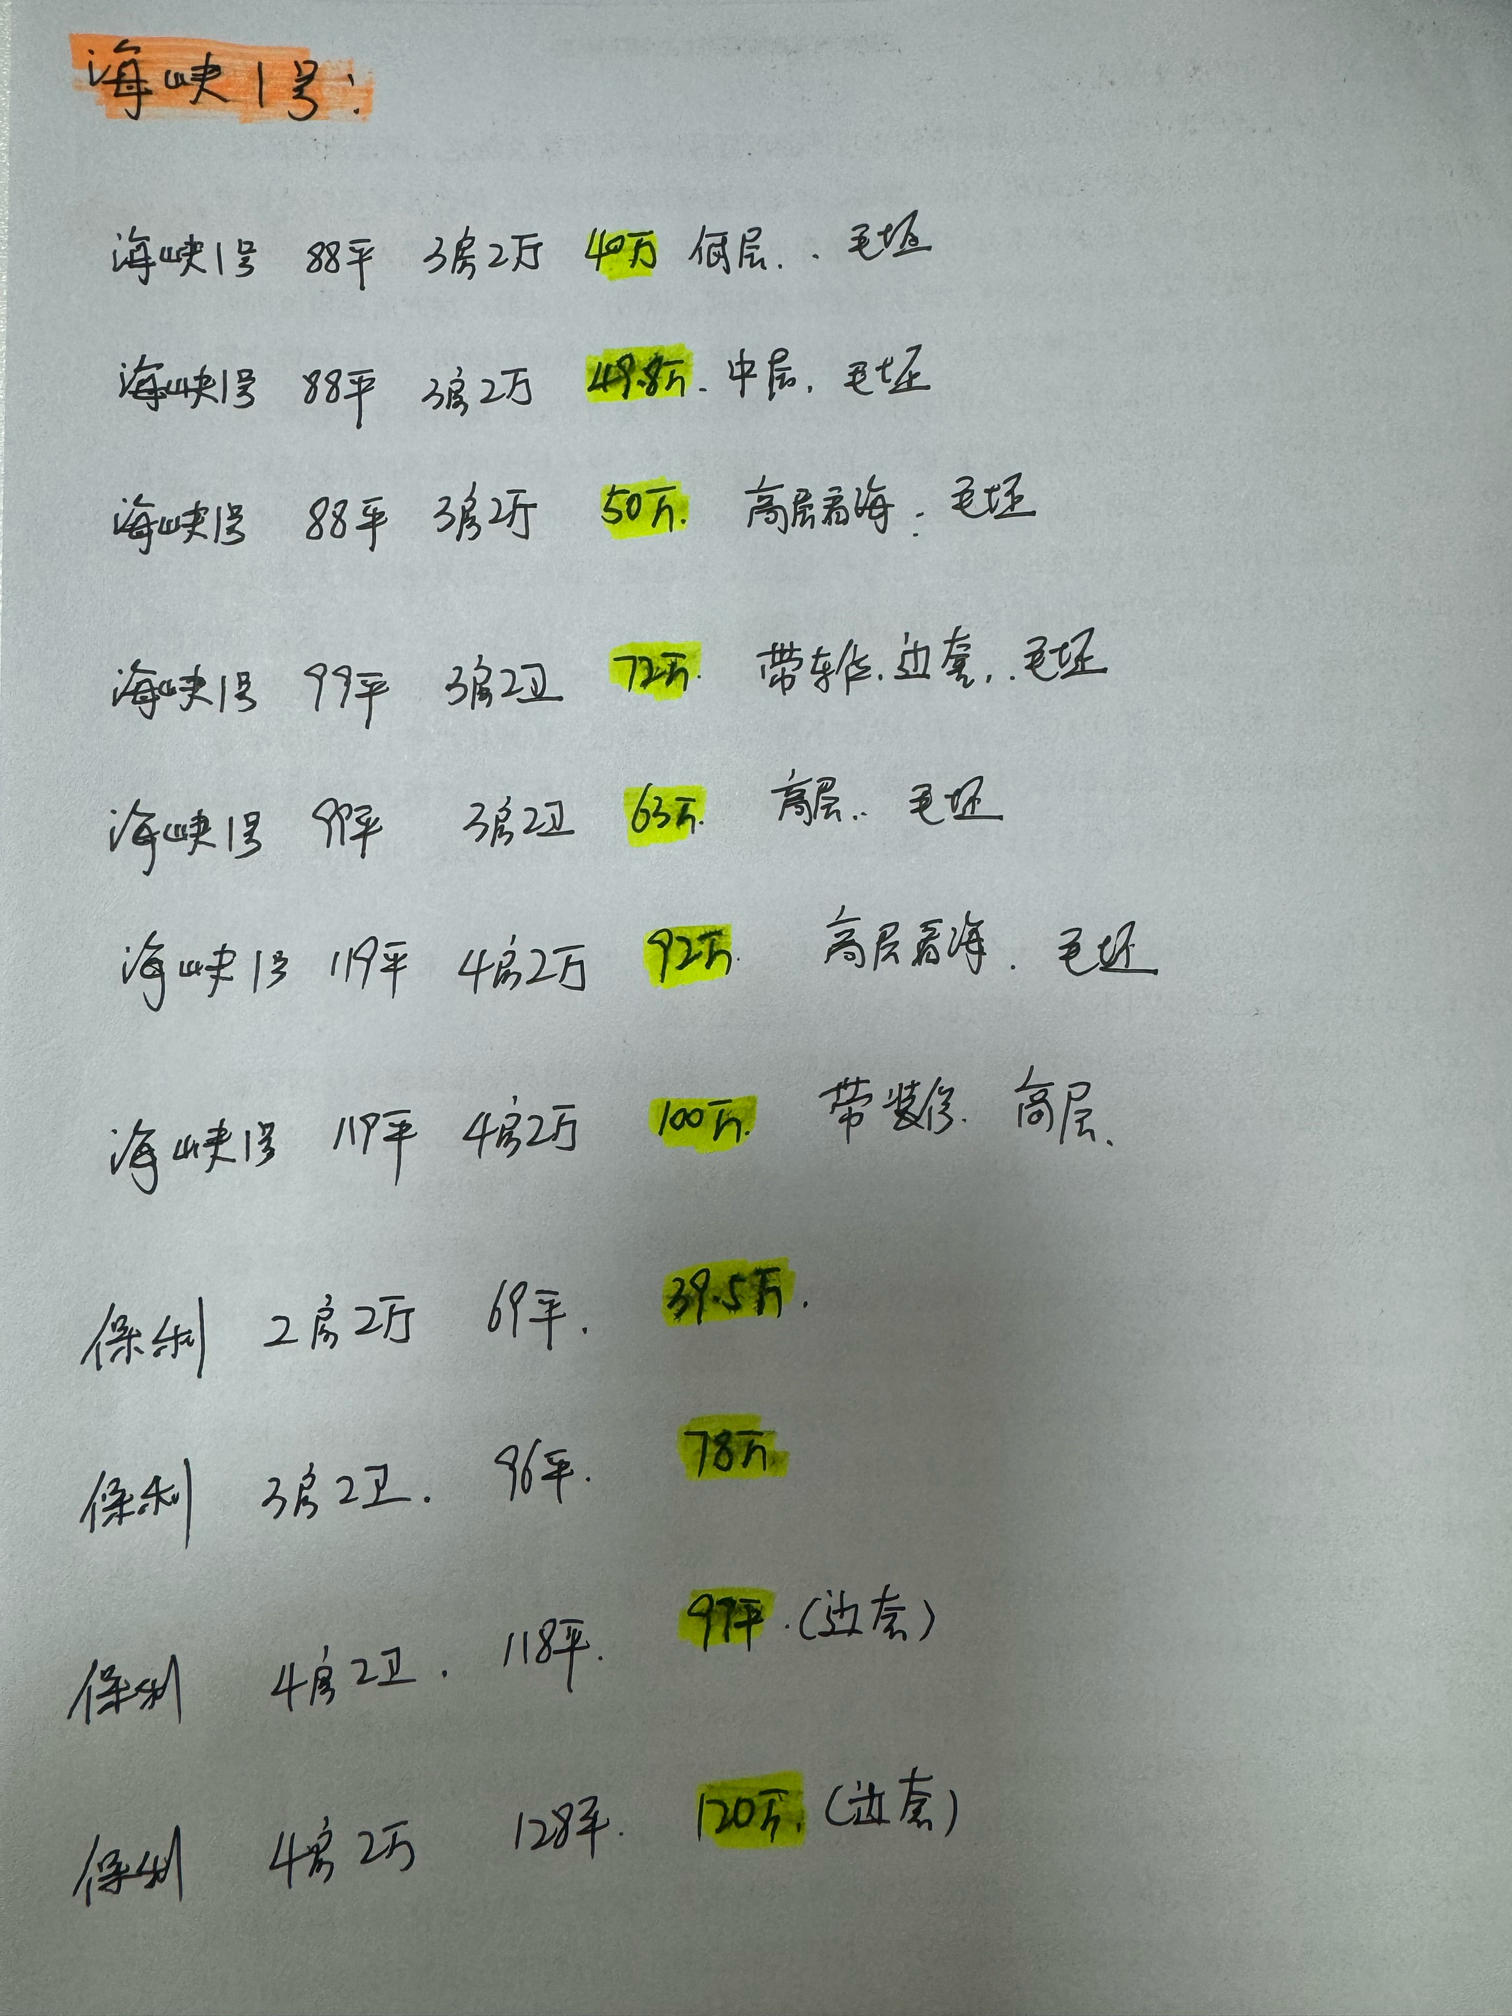 海峡1号:
海峡1号 88平 3房2厅 40万 低层.. 毛坯
海峡1号 88平 3房2厅 49.8万. 中层. 毛坯
海峡1号 88平 3房2厅 50万. 高层看海. 毛坯
海峡1号 99平 3房2卫 72万. 带车位.边套.. 毛坯
海峡1号 99平 3房2卫 63万. 高层.. 毛坯
海峡1号 119平 4房2厅 92万. 高层看海. 毛坯
海峡1号 119平 4房2厅 100万. 带装修. 高层.
保利 2房2厅 69平. 39.5万.
保利 3房2卫. 96平. 78万
保利 4房2卫. 118平. 97平.(边套)
保利 4房2厅 128平. 120万.(边套)